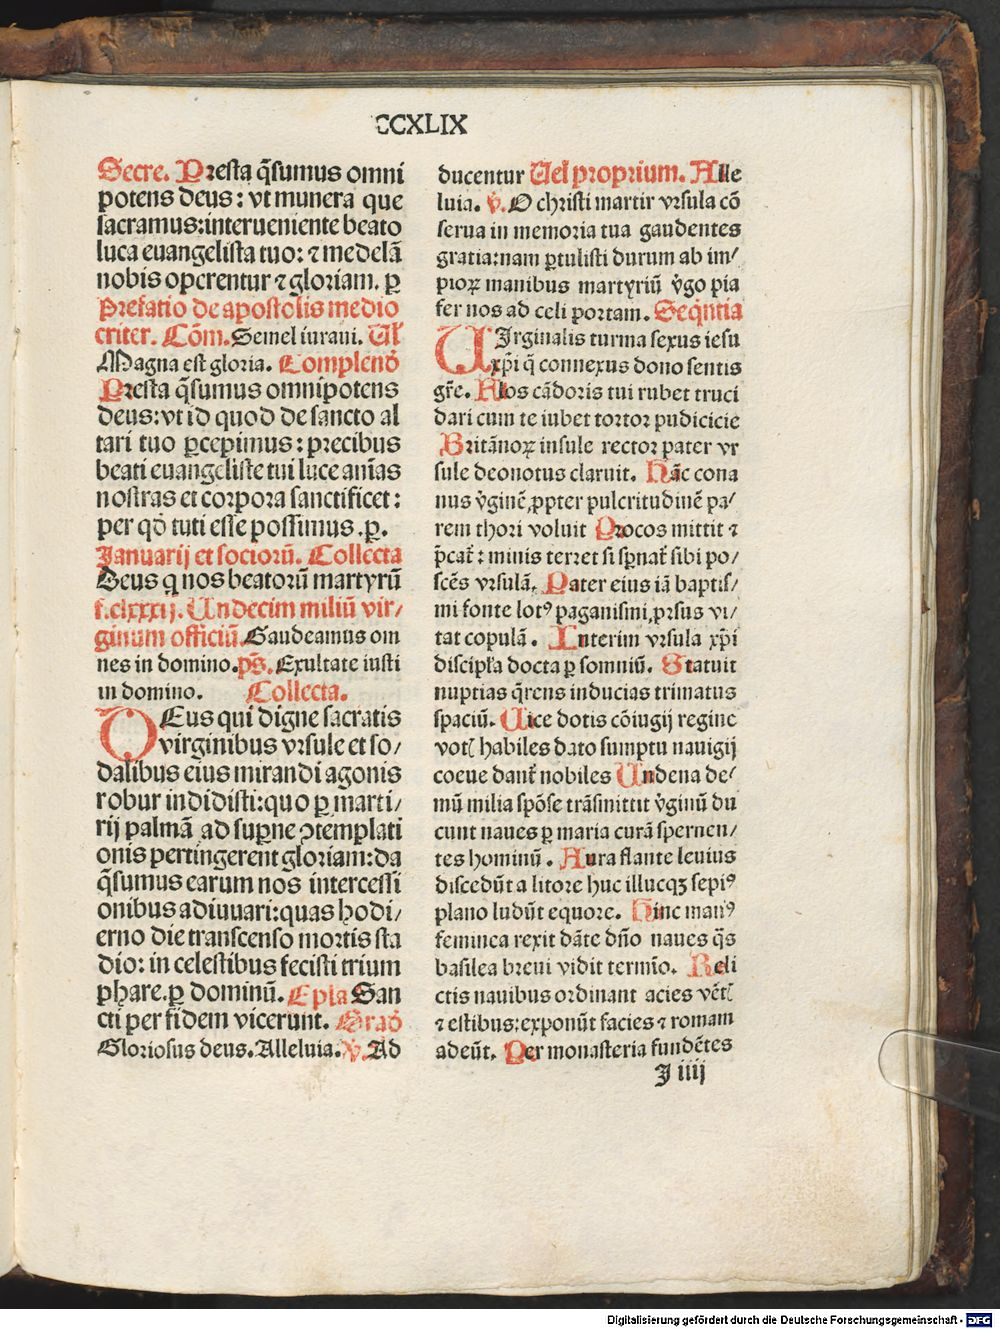 CCXLIX
Secre. Presta q̄sumus omni
potens deus: vt munera que
sacramus:interueniente beato
luca euangelista tuo: ⁊ medelā
nobis operentur ⁊ gloriam. ꝑ
Prefatio de apostolis medio
criter. Cōm. Semel iuraui. Uł
Magna est gloria. Complend̄
Presta q̄sumus omnipotens
deus: vt id quod de sancto al
tari tuo ꝑcepimus: precibus
beati euangeliste tui luce aīas
nostras et corpora sanctificet:
per qd̄ tuti esse possimus .ꝑ.
Januarij et sociorū. Collecta
Deus q̇ nos beatorū martyrū
f.clxxxij. Undecim miliū vir/
ginum officiū. Gaudeamus om
nes in domino. ps̄. Exultate iusti
in domino. Collecta.
DEus qui digne sacratis
virginibus vrsule et so/
dalibus eius mirandi agonis
robur indidisti:quo ꝑ marti/
rij palmā ad suꝑne ꝯtemplati
onis pertingerent gloriam: da
q̄sumus earum nos intercessi
onibus adiuuari: quas hodi/
erno die transcenso mortis sta
dio: in celestibus fecisti trium
phare. ꝑ dominū. Epla San
cti per fidem vicerunt. Grad̄
Gloriosus deus. Alleluia. ℣. Ad
ducentur Uel proprium. Alle
luia. ℣. O christi martir vrsula cō
serua in memoria tua gaudentes
gratia: nam ꝑtulisti durum ab im/
pioꝝ manibus martyriū v̇go pia
fer nos ad celi portam. Seq̄ntia
UIrginalis turma sexus iesu
xp̄i q̄ connexus dono sentis
gr̄e. Flos cādoris tui rubet truci
dari cum te iubet tortor pudicicie
Britānoꝝ insule rector pater vr
sule deonotus claruit. Hāc cona
nus v̇ginē ꝓpter pulcritudinē pa/
rem thori voluit Procos mittit ⁊
p̄cat̄: minis terret si sꝑnat̄ sibi po/
scēs vrsulā. Pater eius iā baptis/
mi fonte lotꝰ paganismi ꝓrsus vi/
tat copulā. Interim vrsula xp̄i
discipl̄a docta ꝑ somniū. Statuit
nuptias q̄rens inducias trimatus
spaciū. Uice dotis cōiugij regine
votꝭ habiles dato sumptu nauigij
coeue dant̄ nobiles Undena de/
mū milia spōse trāsmittit v̇ginū du
cunt naues ꝑ maria curā spernen/
tes hominū. Aura flante leuius
discedūt a litore huc illucqꝫ sepiꝰ
plano ludūt equore. Hinc manꝰ
feminea rexit dāte dn̄o naues q̄s
basilea breui vidit termīo. Reli
ctis nauibus ordinant acies vētꝭ
⁊ estibus: exponūt facies ⁊ romam
adeūt. Per monasteria fundētes
J iiij
Digitalisierung gefördert durch die Deutsche Forschungsgemeinschaft - DFG